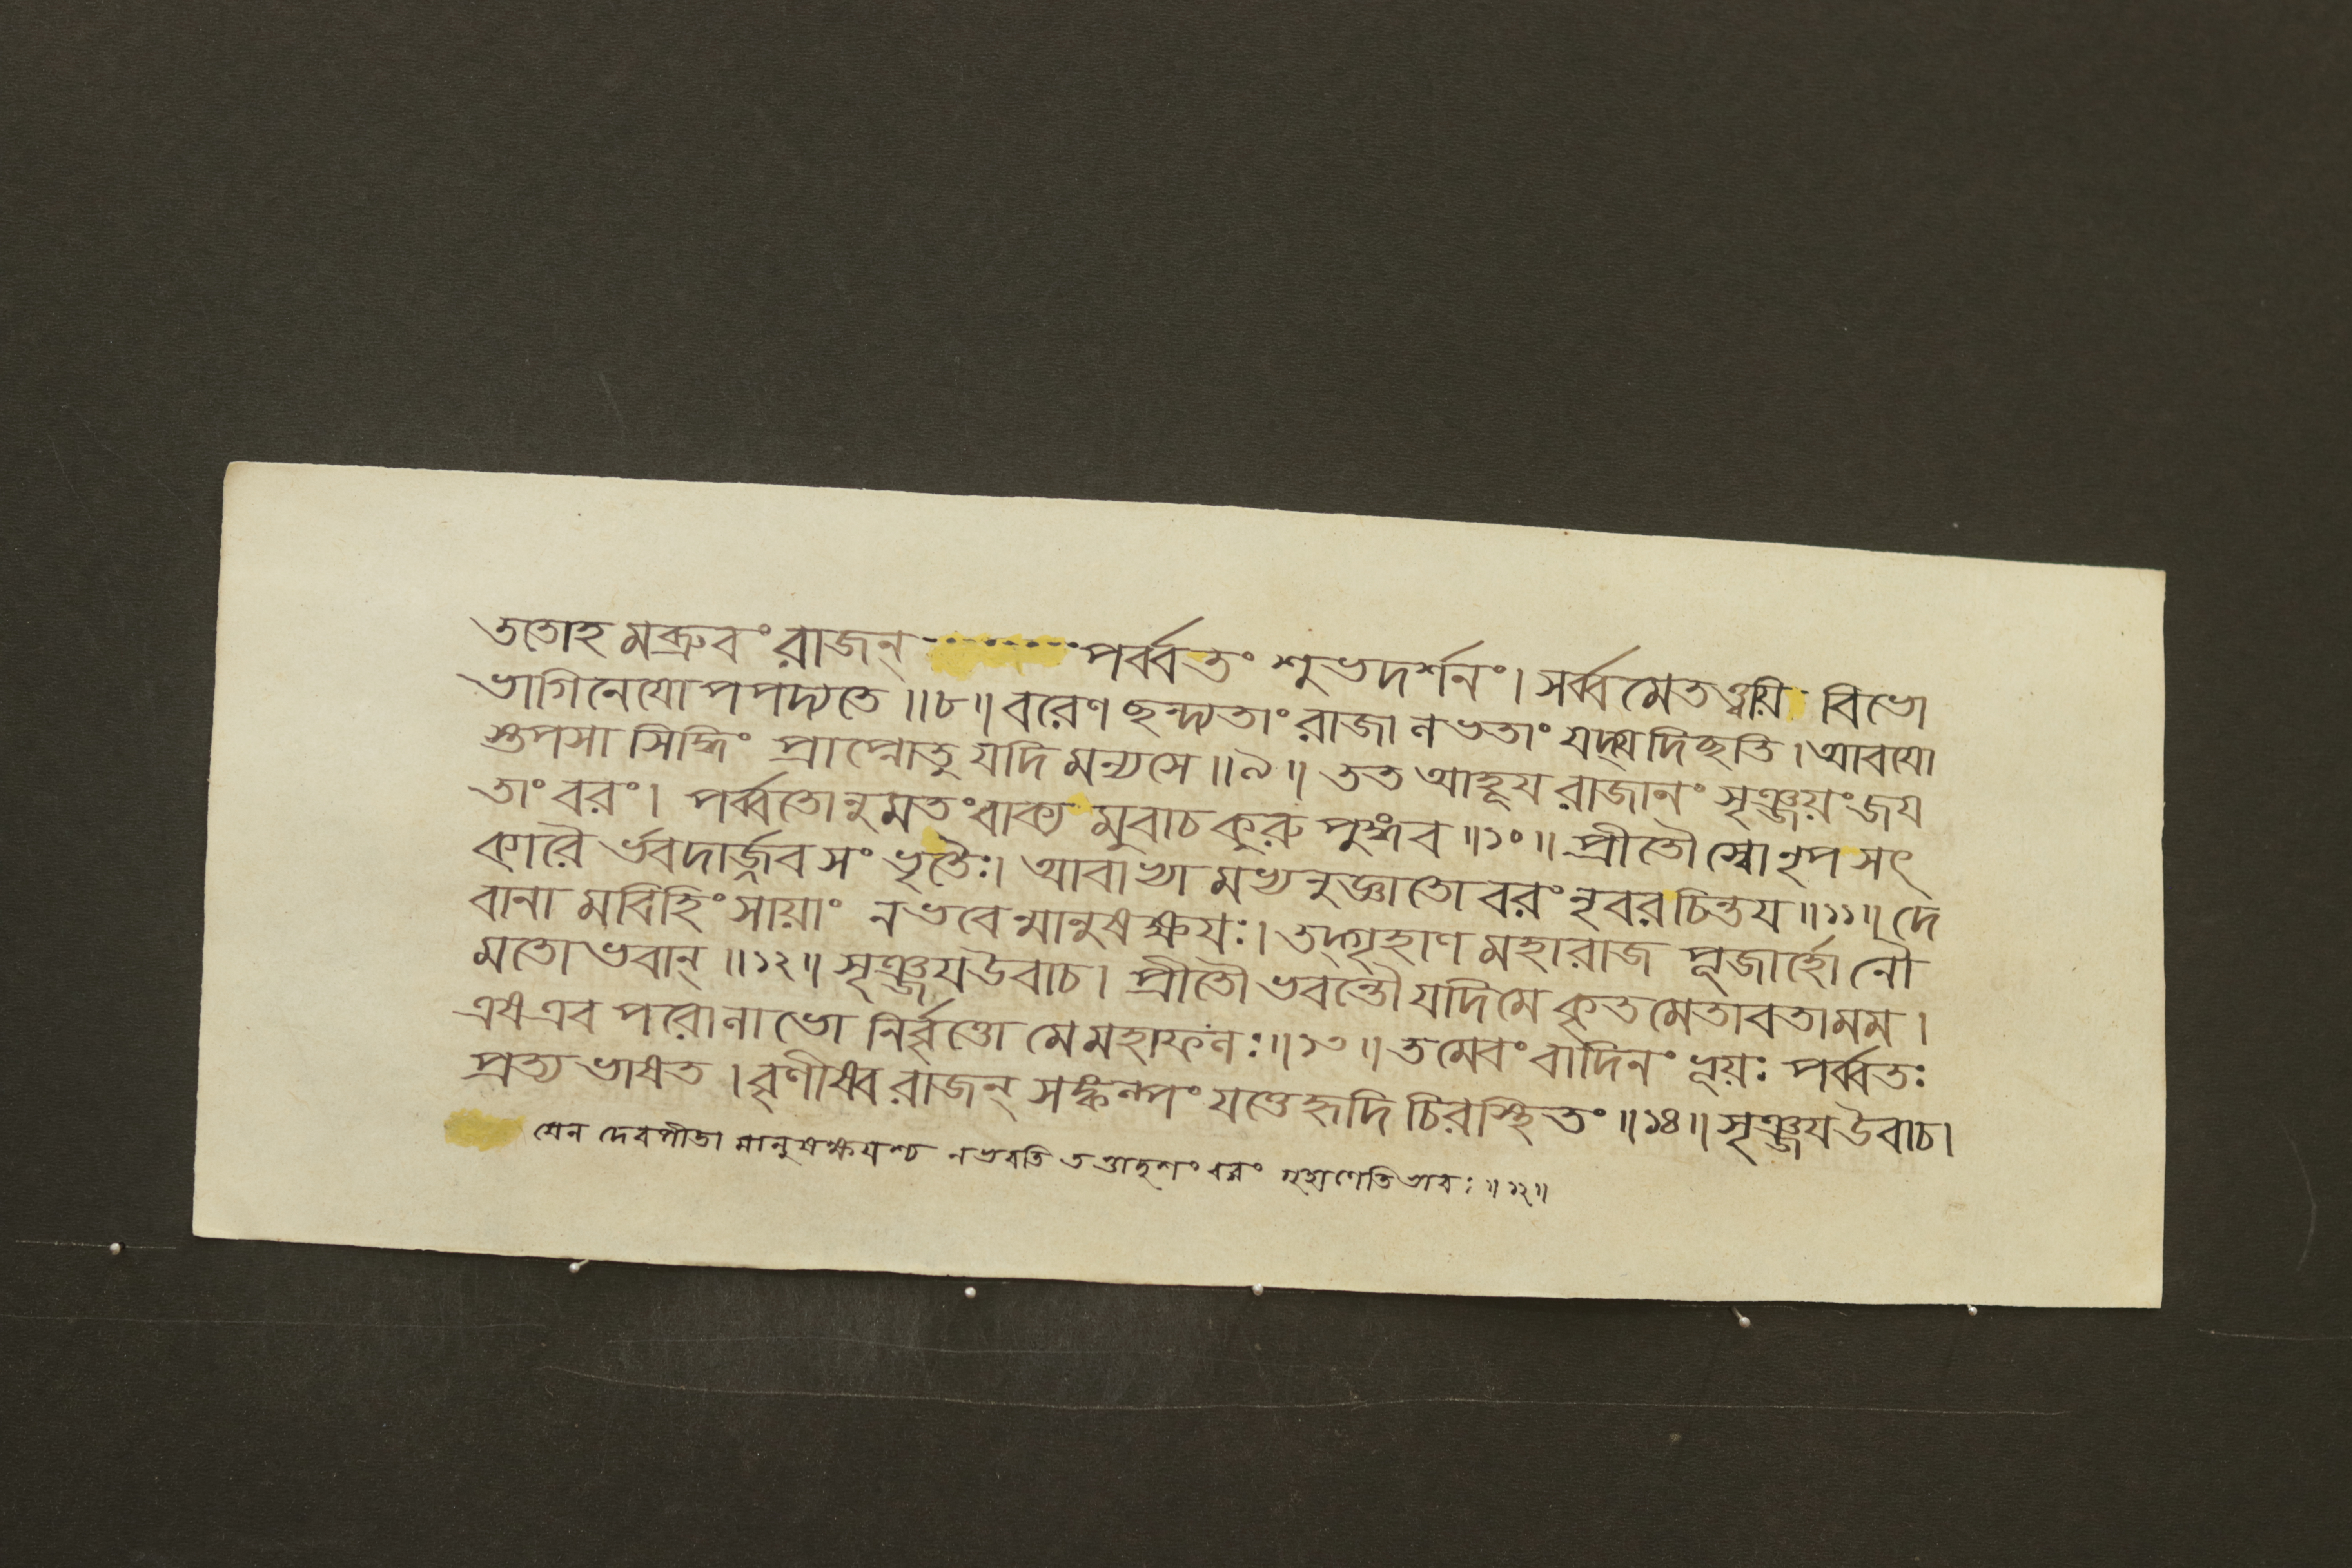 ততোহ মব্রুবং রাজন্ ········ পর্ব্বতং শুভদর্শনং। সর্ব্বমেতত্ত্বয়ি বিভো
ভাগিনেযোপপদ্যতে॥৮॥ বরেণ ছন্দ্যতাং রাজা নভতাং যদ্যদিচ্ছতি। আবযো
স্তপসা সিদ্ধিং প্রাপ্নোতু যদি মন্যসে॥৯॥ তত আহূয রাজানং সৃঞ্জয়ং জয
তাং বরং। পর্ব্বতোনুমতং বাক্য মুবাচ কুরু পুঙ্গব॥১০॥ প্রীতৌ স্বো নৃপ সৎ
কারৈ র্ভবদার্জ্জব সংভৃতৈঃ। আবাভ্যা মভ্যনুজ্ঞাতো বরং নৃবর চিন্তয॥১১॥ দে
বানা মবিহিংসায়াং ন ভবেন্মানুষক্ষযঃ। তদ্গৃহাণ মহারাজ পূজার্হো নৌ
মতো ভবান্॥১২॥ সৃঞ্জয উবাচ। প্রীতৌ ভবন্তৌ যদি মে কৃতমেতাবতা মম।
এষ এব পরোনাভো নির্ব্বৃত্তো মে মহাফনঃ॥১৩॥ তমেবং বাদিনং ভূয়ঃ পর্ব্বতঃ
প্রত্যভাষত। বৃণীষ্ব রাজন্ সঙ্কল্পং যত্তে হৃদি চিরস্থিতং॥১৪॥ সৃঞ্জয উবাচ।
যেন দেবপীডা মানুষক্ষযশ্চ ন ভবতি তত্তাদৃশং বরং গৃহাণেতি ভাবঃ॥১২॥